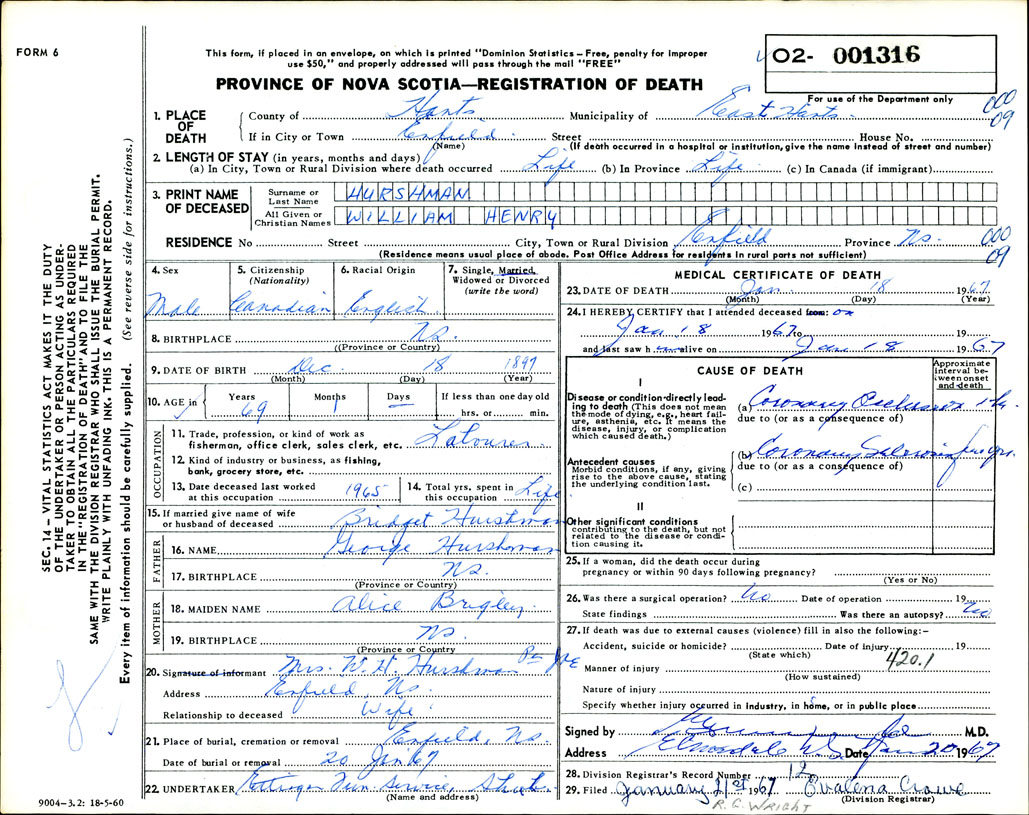 FORM 6
This form, if placed in an envelope, on which is printed "Dominion Statistics – Free, penalty for improper
use $50," and properly addressed will pass through the mail "FREE"
O2- 001316
PROVINCE OF NOVA SCOTIA—REGISTRATION OF DEATH
For use of the Department only
000
09
1. PLACE OF DEATH
County of Hants Municipality of East Hants
If in City or Town Enfield Street House No.
(Name) (If death occurred in a hospital or institution, give the name instead of street and number)
2. LENGTH OF STAY (in years, months and days)
(a) In City, Town or Rural Division where death occurred Life (b) In Province Life (c) In Canada (if immigrant)
3. PRINT NAME OF DECEASED
Surname or Last Name HURSHMAN
All Given or Christian Names WILLIAM HENRY
RESIDENCE No Street City, Town or Rural Division Enfield Province Ns.
000
09
(Residence means usual place of abode. Post Office Address for residents in rural parts not sufficient)
4. Sex
Male
5. Citizenship
(Nationality)
Canadian
6. Racial Origin
English
7. Single, Married, Widowed or Divorced
(write the word)
8. BIRTHPLACE Ns.
((Province or Country)
9. DATE OF BIRTH Dec. 18 1897
(Month) (Day) (Year)
10. AGE in
Years 69
Months 1
Days –
If less than one day old
hrs. or min.
OCCUPATION
11. Trade, profession, or kind of work as
fisherman, office clerk, sales clerk, etc. Labourer
12. Kind of industry or business, as fishing,
bank, grocery store, etc.
13. Date deceased last worked
at this occupation 1965
14. Total yrs. spent in
this occupation Life
15. If married give name of wife
or husband of deceased Bridget Hurshman
FATHER
16. NAME George Hurshman
17. BIRTHPLACE Ns.
(Province or Country)
MOTHER
18. MAIDEN NAME Alice Brigley
19. BIRTHPLACE Ns.
(Province or Country
20. Signature of informant Mrs. W. H. Hurshman
Address Enfield, Ns.
Relationship to deceased Wife
21. Place of burial, cremation or removal Enfield, Ns.
Date of burial or removal 20 Jan 67
22. UNDERTAKER Ettinger Fun service,
(Name and address)
9004-3.2: 18-5-60
MEDICAL CERTIFICATE OF DEATH
23. DATE OF DEATH Jan. 18 1967
(Month) (Day) (Year)
24. I HEREBY CERTIFY that I attended deceased from: on
Jan 18 1967 to
and last saw h alive on Jan 18 1967
CAUSE OF DEATH
Approximate interval between onset and death
I
Disease or condition directly leading to death (This does not mean
the mode of dying, e.g., heart failure, asthenia, etc. It means the
disease, injury, or complication
which caused death.)
(a) Coronary Occlusion
due to (or as a consequence of)
Antecedent causes
Morbid conditions, if any, giving
rise to the above cause, stating
the underlying condition last.
(b) Coronary Sclerosis
due to (or as a consequence of)
(c)
II
Other significant conditions
contributing to the death, but not
related to the disease or condition causing it.
25. If a woman, did the death occur during
pregnancy or within 90 days following pregnancy?
(Yes or No)
26. Was there a surgical operation? No Date of operation 19
State findings Was there an autopsy? No
27. If death was due to external causes (violence) fill in also the following:–
Accident, suicide or homicide? Date of injury 19
(State which)
420.1
Manner of injury
(How sustained)
Nature of injury
Specify whether injury occurred in industry, in home, or in public place
Signed by M.D.
Address Elmsdale N.S. Date Jan 20 1967
28. Division Registrar's Record Number 12
29. Filed January 21st 1967 Evalena Crowe
(Division Registrar)
R. G. WRIGHT
SEC. 14 – VITAL STATISTICS ACT MAKES IT THE DUTY
OF THE UNDERTAKER OR PERSON ACTING AS UNDER-
TAKER TO OBTAIN ALL THE PARTICULARS REQUIRED
IN THE "REGISTRATION OF DEATH" AND TO FILE THE
SAME WITH THE DIVISION REGISTRAR WHO SHALL ISSUE THE BURIAL PERMIT.
WRITE PLAINLY WITH UNFADING INK. THIS IS A PERMANENT RECORD.
Every item of information should be carefully supplied. (See reverse side for instructions.)